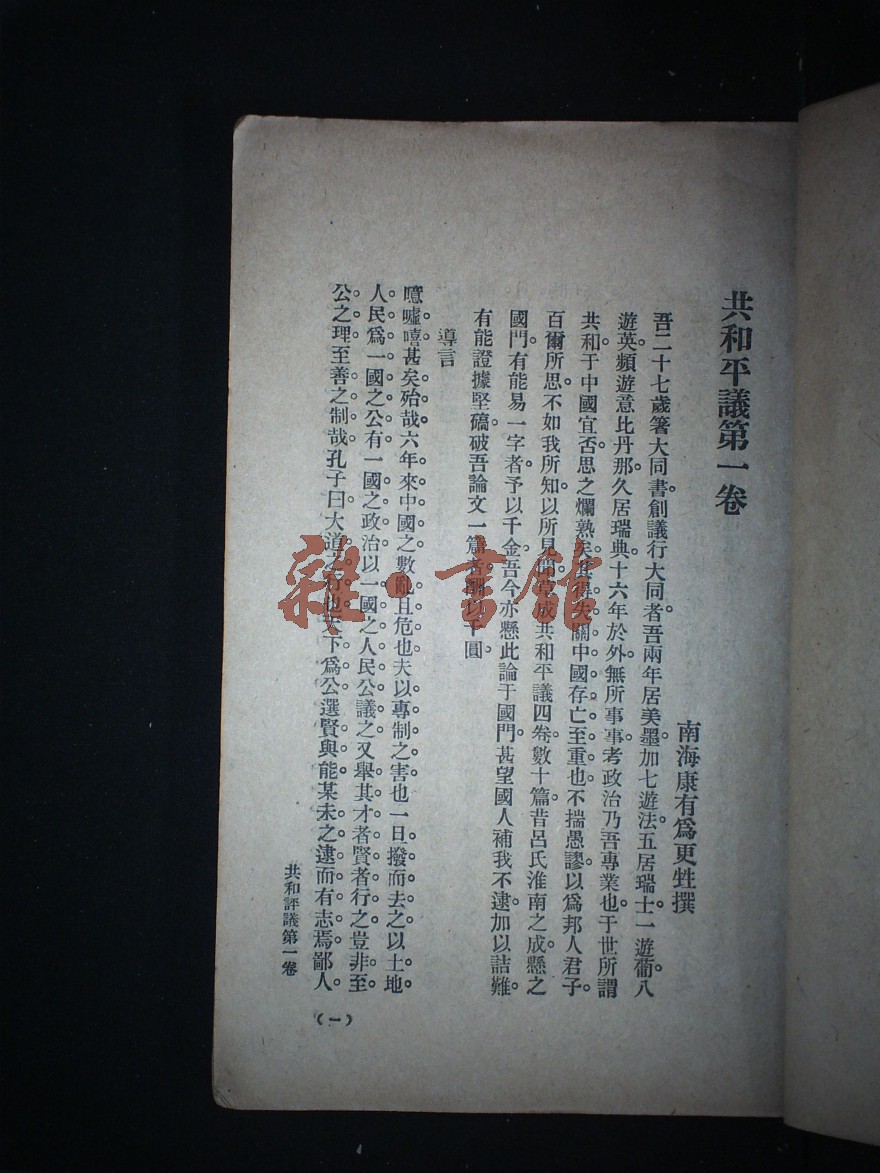 共和平議第一卷
南海康有爲更甡撰
吾二十七歲箸大同書創議行大同者吾兩年居美墨加七遊法五居瑞士一遊葡八
遊英頻遊意比丹那久居瑞典十六年於外無所事事考政治乃吾專業也于世所謂
共和于中國宜否思之爛熟矣其得失關中國存亡至重也不揣愚謬以爲邦人君子
百爾所思不如我所知以所見聞草成共和平議四卷數十篇昔呂氏淮南之成懸之
國門有能易一字者予以千金吾今亦懸此論于國門甚望國人補我不逮加以詰難
有能證據堅确破吾論文一篇者酬以千圓
導言
噫嘘嘻甚矣殆哉六年來中國之數亂且危也夫以專制之害也一日撥而去之以土地
人民爲一國之公有一國之政治以一國之人民公議之又舉其才者賢者行之豈非至
公之理至善之制哉孔子曰大道之行也天下爲公選賢與能某未之逮而有志焉鄙人
共和評議第一卷
(一)
雜·書館